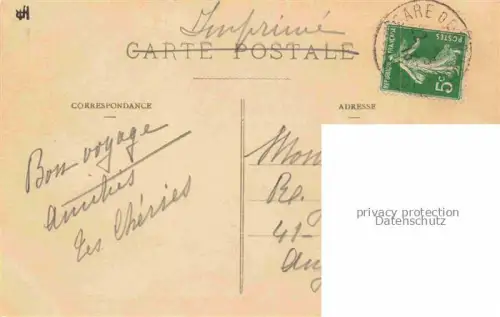 Imprimé
CARTE POSTALE
GARE D
REPUBLIQUE FRANÇAISE
POSTES
5c
CORRESPONDANCE
ADRESSE
Bon voyage
Amitiés
Tes Chéries
Mon
Re
41-
Ang
privacy protection
Datenschutz